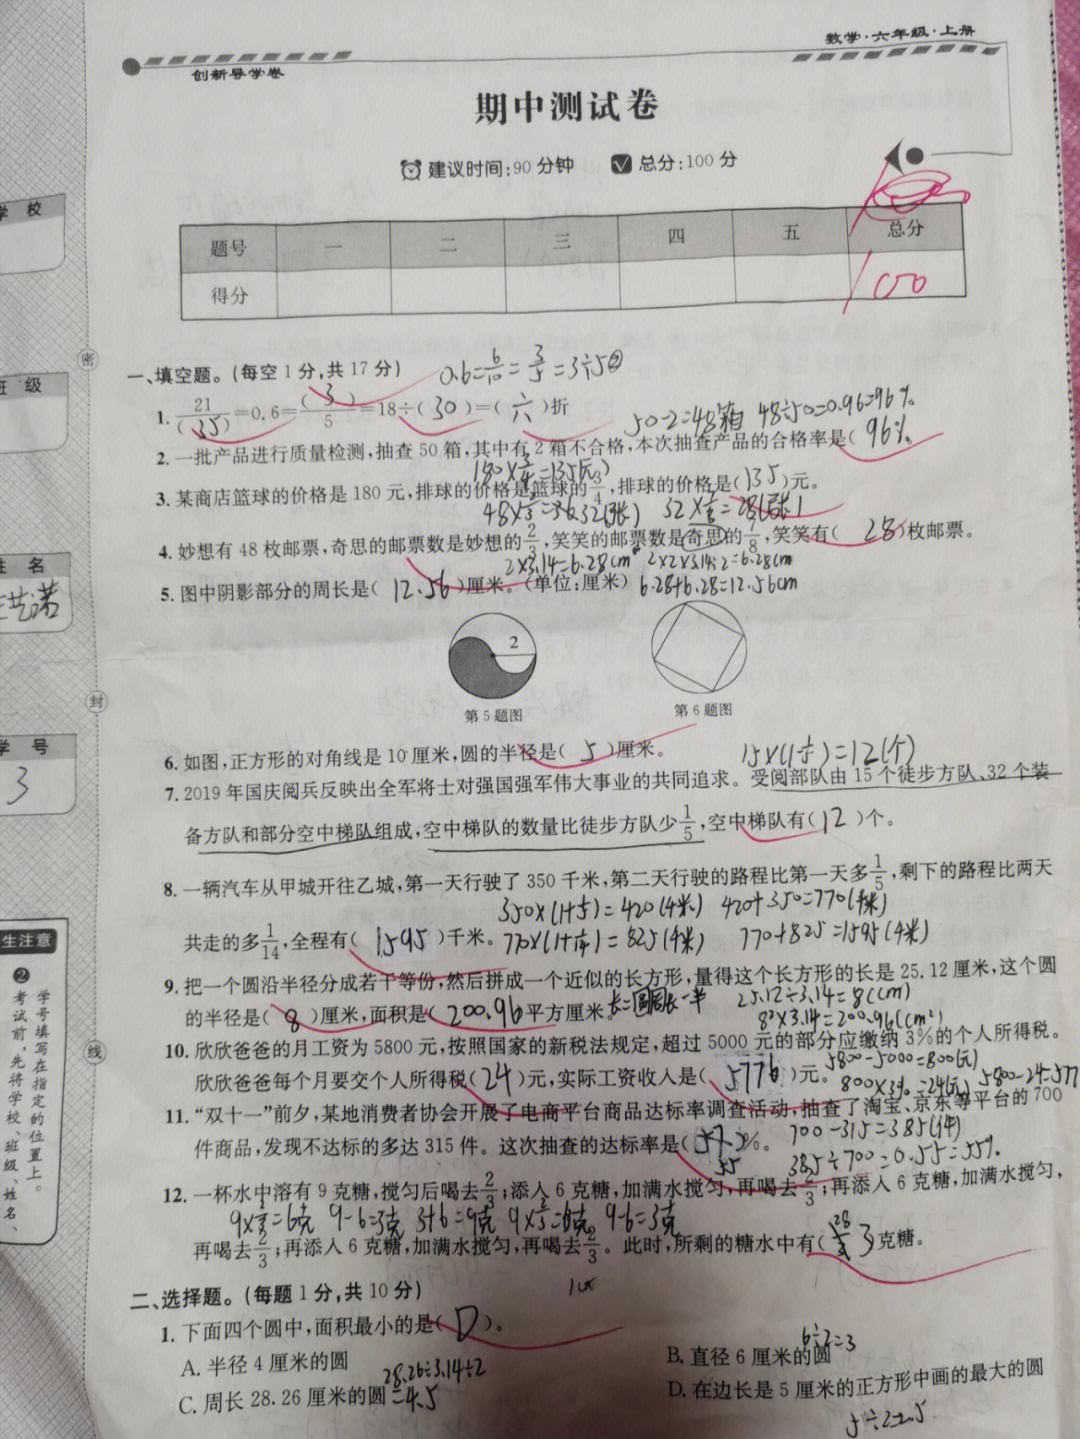 数学·六年级·上册
创新导学卷
期中测试卷
建议时间:90分钟 总分:100分
题号 一 二 三 四 五 总分
得分 100
学校
班级
姓名
学号
3
密
封
线
生注意
❷
考试前,先将学校、班级、姓名、
学号填写在指定的位置上。
一、填空题。(每空1分,共17分) 0.6=6/10=3/5=3÷5
1. 21/(35)=0.6=(3)/5=18÷(30)=(六)折
50-2=48箱 48÷50=0.96=96%
2. 一批产品进行质量检测,抽查50箱,其中有2箱不合格,本次抽查产品的合格率是(96%
180×3/4=135(元)
3. 某商店篮球的价格是180元,排球的价格是篮球的3/4,排球的价格是(135)元。
48×2/3=32(张) 32×7/8=28(张)
4. 妙想有48枚邮票,奇思的邮票数是妙想的2/3,笑笑的邮票数是奇思的7/8,笑笑有(28)枚邮票。
2×3.14=6.28cm 2×2×3.14÷2=6.28cm
5. 图中阴影部分的周长是(12.56)厘米。(单位:厘米) 6.28+6.28=12.56cm
2
第5题图 第6题图
6. 如图,正方形的对角线是10厘米,圆的半径是(5)厘米。 15×(1-1/5)=12(个)
7. 2019年国庆阅兵反映出全军将士对强国强军伟大事业的共同追求。受阅部队由15个徒步方队、32个装
备方队和部分空中梯队组成,空中梯队的数量比徒步方队少1/5,空中梯队有(12)个。
8. 一辆汽车从甲城开往乙城,第一天行驶了350千米,第二天行驶的路程比第一天多1/5,剩下的路程比两天
350×(1+1/5)=420(千米) 420+350=770(千米)
共走的多1/14,全程有(1595)千米。 770×(1+1/14)=825(千米) 770+825=1595(千米)
9. 把一个圆沿半径分成若干等份,然后拼成一个近似的长方形,量得这个长方形的长是25.12厘米,这个圆
的半径是(8)厘米,面积是(200.96平方厘米。 长=圆周长一半 25.12÷3.14=8(cm)
8²×3.14=200.96(cm²)
10. 欣欣爸爸的月工资为5800元,按照国家的新税法规定,超过5000元的部分应缴纳3%的个人所得税。
5800-5000=800(元)
欣欣爸爸每个月要交个人所得税(24)元,实际工资收入是(5776)元。 800×3%=24(元) 5800-24=577
11. “双十一”前夕,某地消费者协会开展了电商平台商品达标率调查活动,抽查了淘宝、京东等平台的700
件商品,发现不达标的多达315件。这次抽查的达标率是( )%。 700-315=385(件)
55 385÷700=0.55=55%
12. 一杯水中溶有9克糖,搅匀后喝去2/3;添入6克糖,加满水搅匀,再喝去2/3;再添入6克糖,加满水搅匀,
9×2/3=6克 9-6=3克 3+6=9克 9×2/3=6克 9-6=3克
再喝去2/3;再添入6克糖,加满水搅匀,再喝去2/3。此时,所剩的糖水中有( 3克糖。
二、选择题。(每题1分,共10分)
1. 下面四个圆中,面积最小的是(D)。
A. 半径4厘米的圆 B. 直径6厘米的圆 6÷2=3
C. 周长28.26厘米的圆 28.26÷3.14÷2=4.5 D. 在边长是5厘米的正方形中画的最大的圆
5÷2=2.5